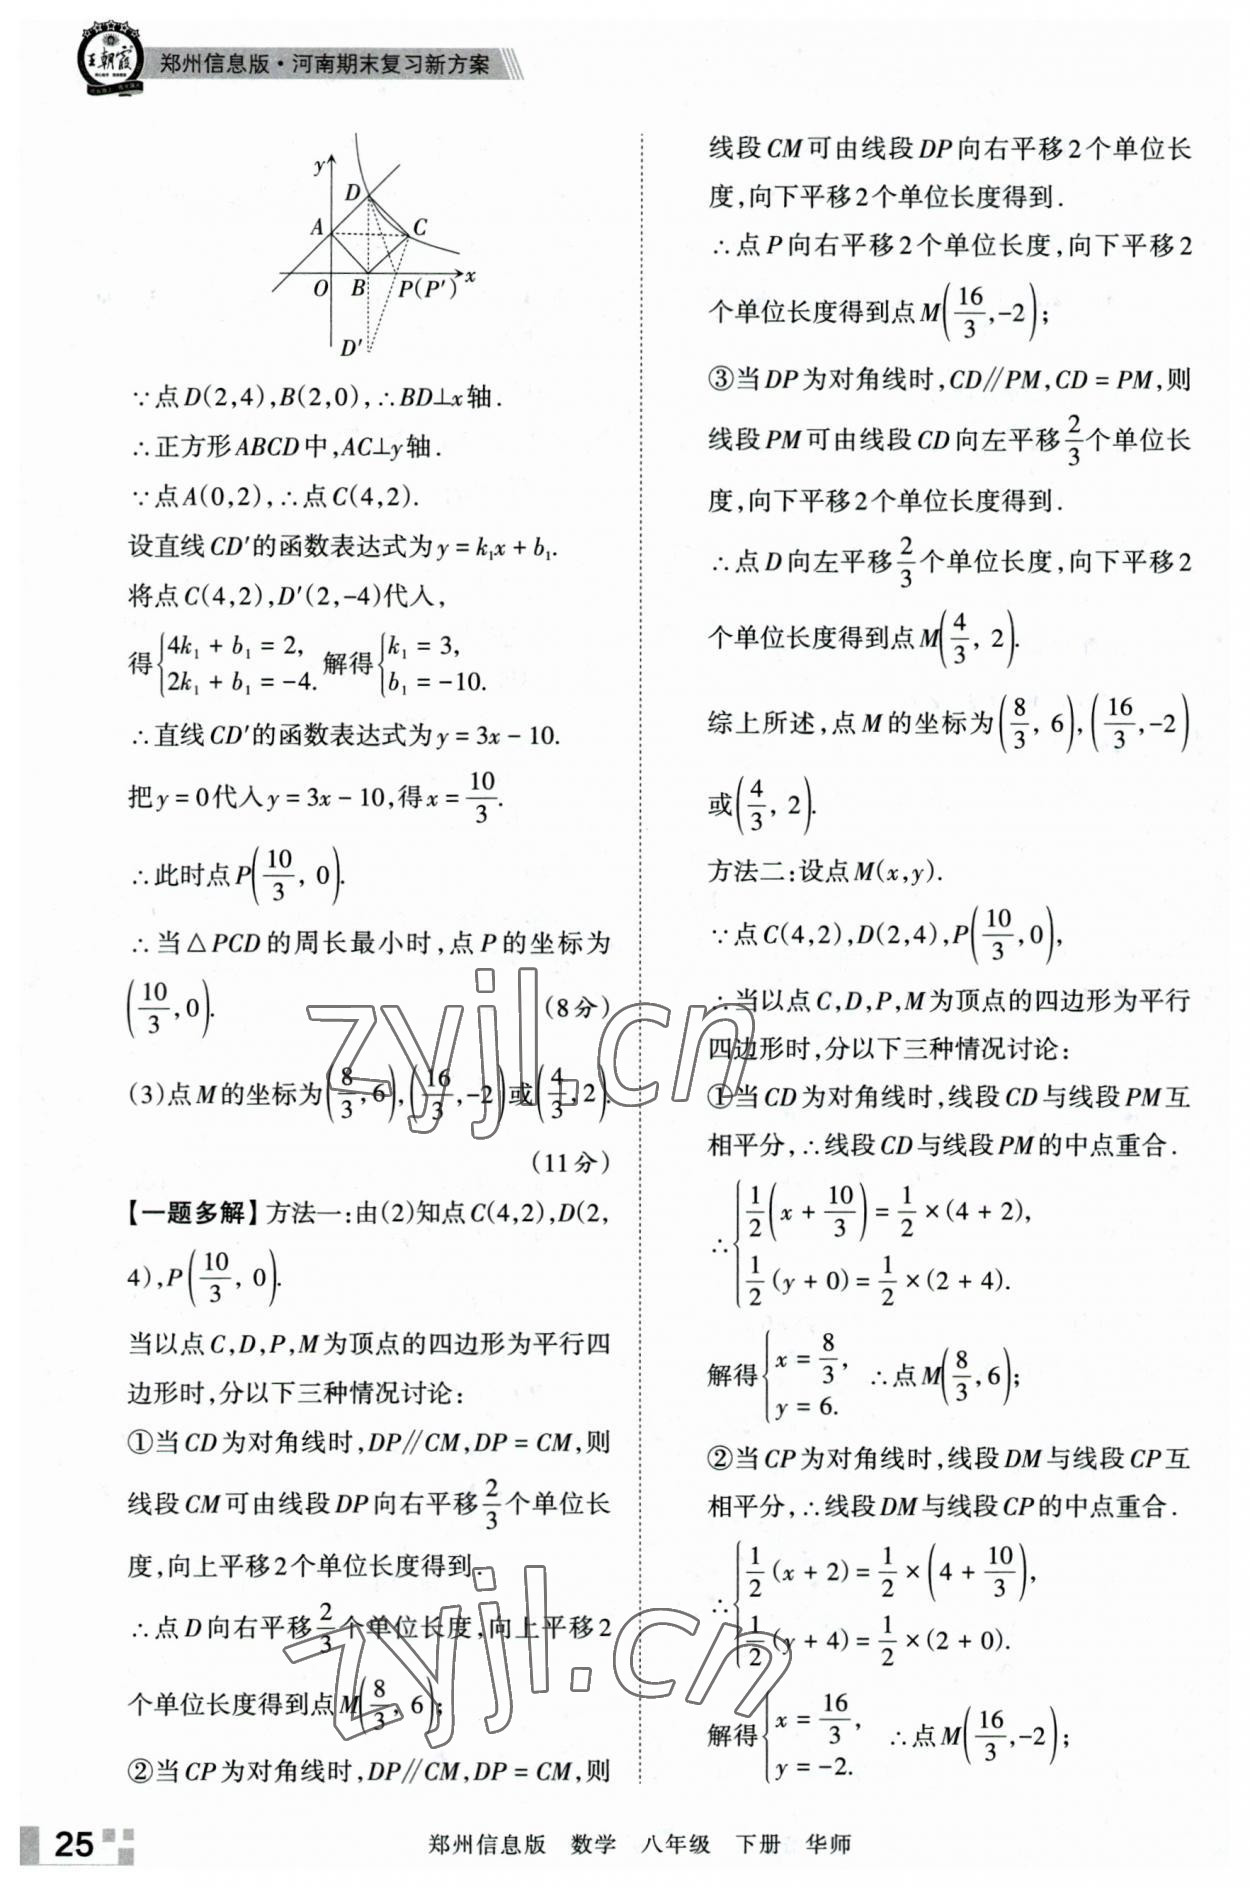 王朝霞
郑州信息版·河南期末复习新方案
y
D
A
C
O
B
P(P′)
x
D′
∵点D(2,4),B(2,0),∴BD⊥x轴.
∴正方形ABCD中,AC⊥y轴.
∵点A(0,2),∴点C(4,2).
设直线CD′的函数表达式为y=k₁x+b₁.
将点C(4,2),D′(2,-4)代入,
得{4k₁+b₁=2, 2k₁+b₁=-4. 解得{k₁=3, b₁=-10.
∴直线CD′的函数表达式为y=3x-10.
把y=0代入y=3x-10,得x=10/3.
∴此时点P(10/3, 0).
∴当△PCD的周长最小时,点P的坐标为
(10/3,0). (8分)
(3)点M的坐标为(8/3,6),(16/3,-2)或(4/3,2).
(11分)
【一题多解】方法一:由(2)知点C(4,2),D(2,
4),P(10/3, 0).
当以点C,D,P,M为顶点的四边形为平行四
边形时,分以下三种情况讨论:
①当CD为对角线时,DP∥CM,DP=CM,则
线段CM可由线段DP向右平移2/3个单位长
度,向上平移2个单位长度得到.
∴点D向右平移2/3个单位长度,向上平移2
个单位长度得到点M(8/3, 6);
②当CP为对角线时,DP∥CM,DP=CM,则
线段CM可由线段DP向右平移2个单位长
度,向下平移2个单位长度得到.
∴点P向右平移2个单位长度,向下平移2
个单位长度得到点M(16/3,-2);
③当DP为对角线时,CD∥PM,CD=PM,则
线段PM可由线段CD向左平移2/3个单位长
度,向下平移2个单位长度得到.
∴点D向左平移2/3个单位长度,向下平移2
个单位长度得到点M(4/3, 2).
综上所述,点M的坐标为(8/3, 6),(16/3,-2)
或(4/3, 2).
方法二:设点M(x,y).
∵点C(4,2),D(2,4),P(10/3,0),
∴当以点C,D,P,M为顶点的四边形为平行
四边形时,分以下三种情况讨论:
①当CD为对角线时,线段CD与线段PM互
相平分,∴线段CD与线段PM的中点重合.
∴{1/2(x+10/3)=1/2×(4+2),
1/2(y+0)=1/2×(2+4).
解得{x=8/3, y=6. ∴点M(8/3,6);
②当CP为对角线时,线段DM与线段CP互
相平分,∴线段DM与线段CP的中点重合.
∴{1/2(x+2)=1/2×(4+10/3),
1/2(y+4)=1/2×(2+0).
解得{x=16/3, y=-2. ∴点M(16/3,-2);
zyjl.cn
zyjl.cn
25
郑州信息版 数学 八年级 下册 华师